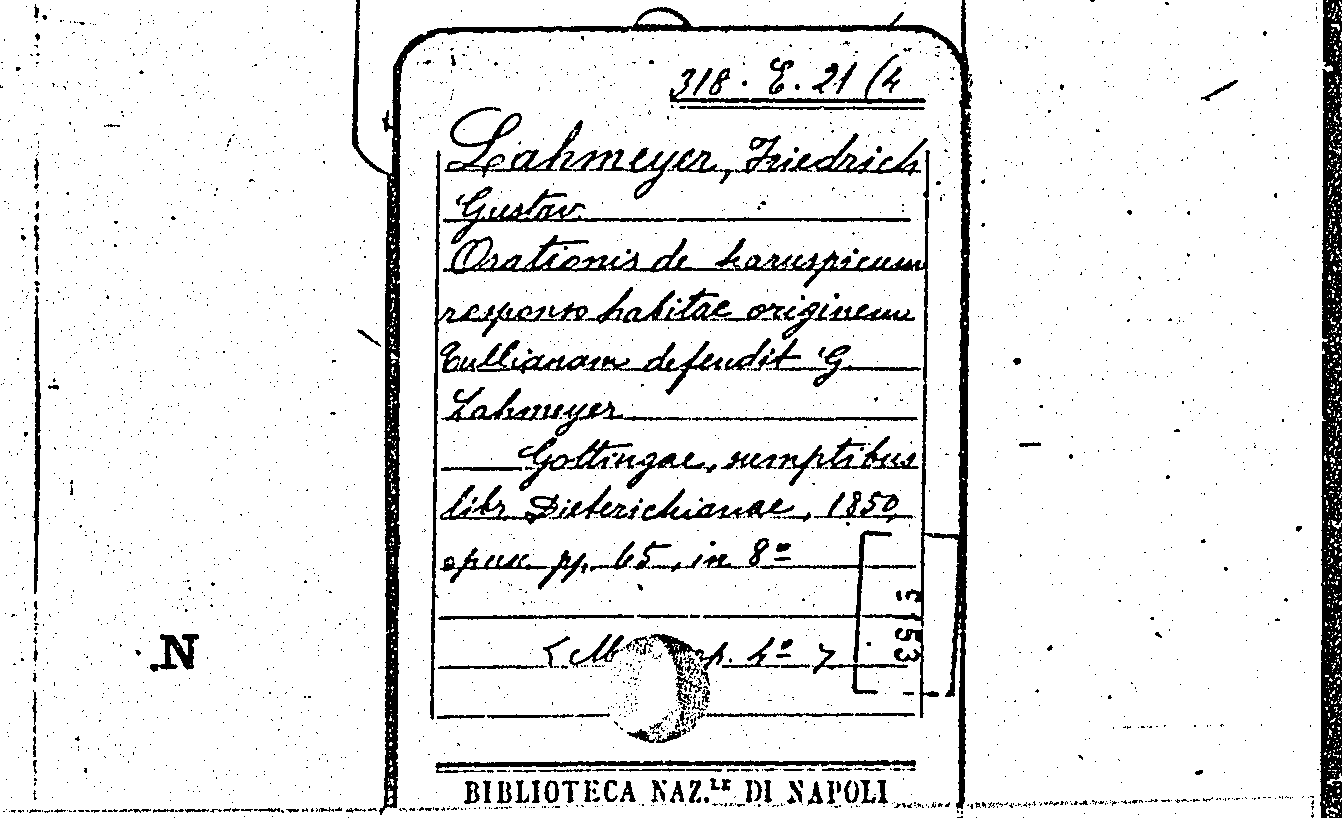 318. E. 21 (4
Lahmeyer, Friedrich
Gustav
Orationis de haruspicum
responso habitae originem
Tullianam defendit G.
Lahmeyer
Gottingae, sumptibus
libr. Dieterichianae, 1850,
opusc. pp. 65, in 8º
5153
.N
BIBLIOTECA NAZ.LE DI NAPOLI